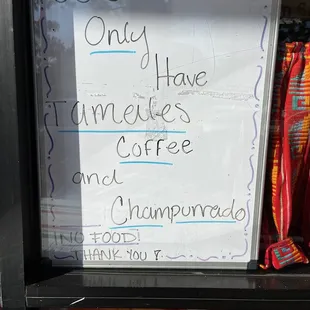 Only
Have
Tamales
Coffee
and
Champurrado
NO FOOD!
THANK YOU